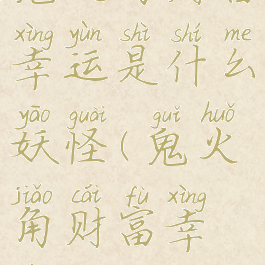 xìng yùn shì shí me
幸运是什么
yāo guài guǐ huǒ
妖怪(鬼火
jiǎo cái fù xìng
角财富幸